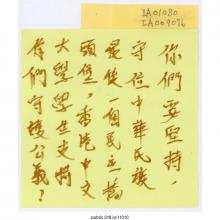 IA01080
IA009076
你們要堅持，
守住中華民族
最後一個民主橋
頭堡，香港中文
大學學生支持
你們守護公義！
public.318.io/11010